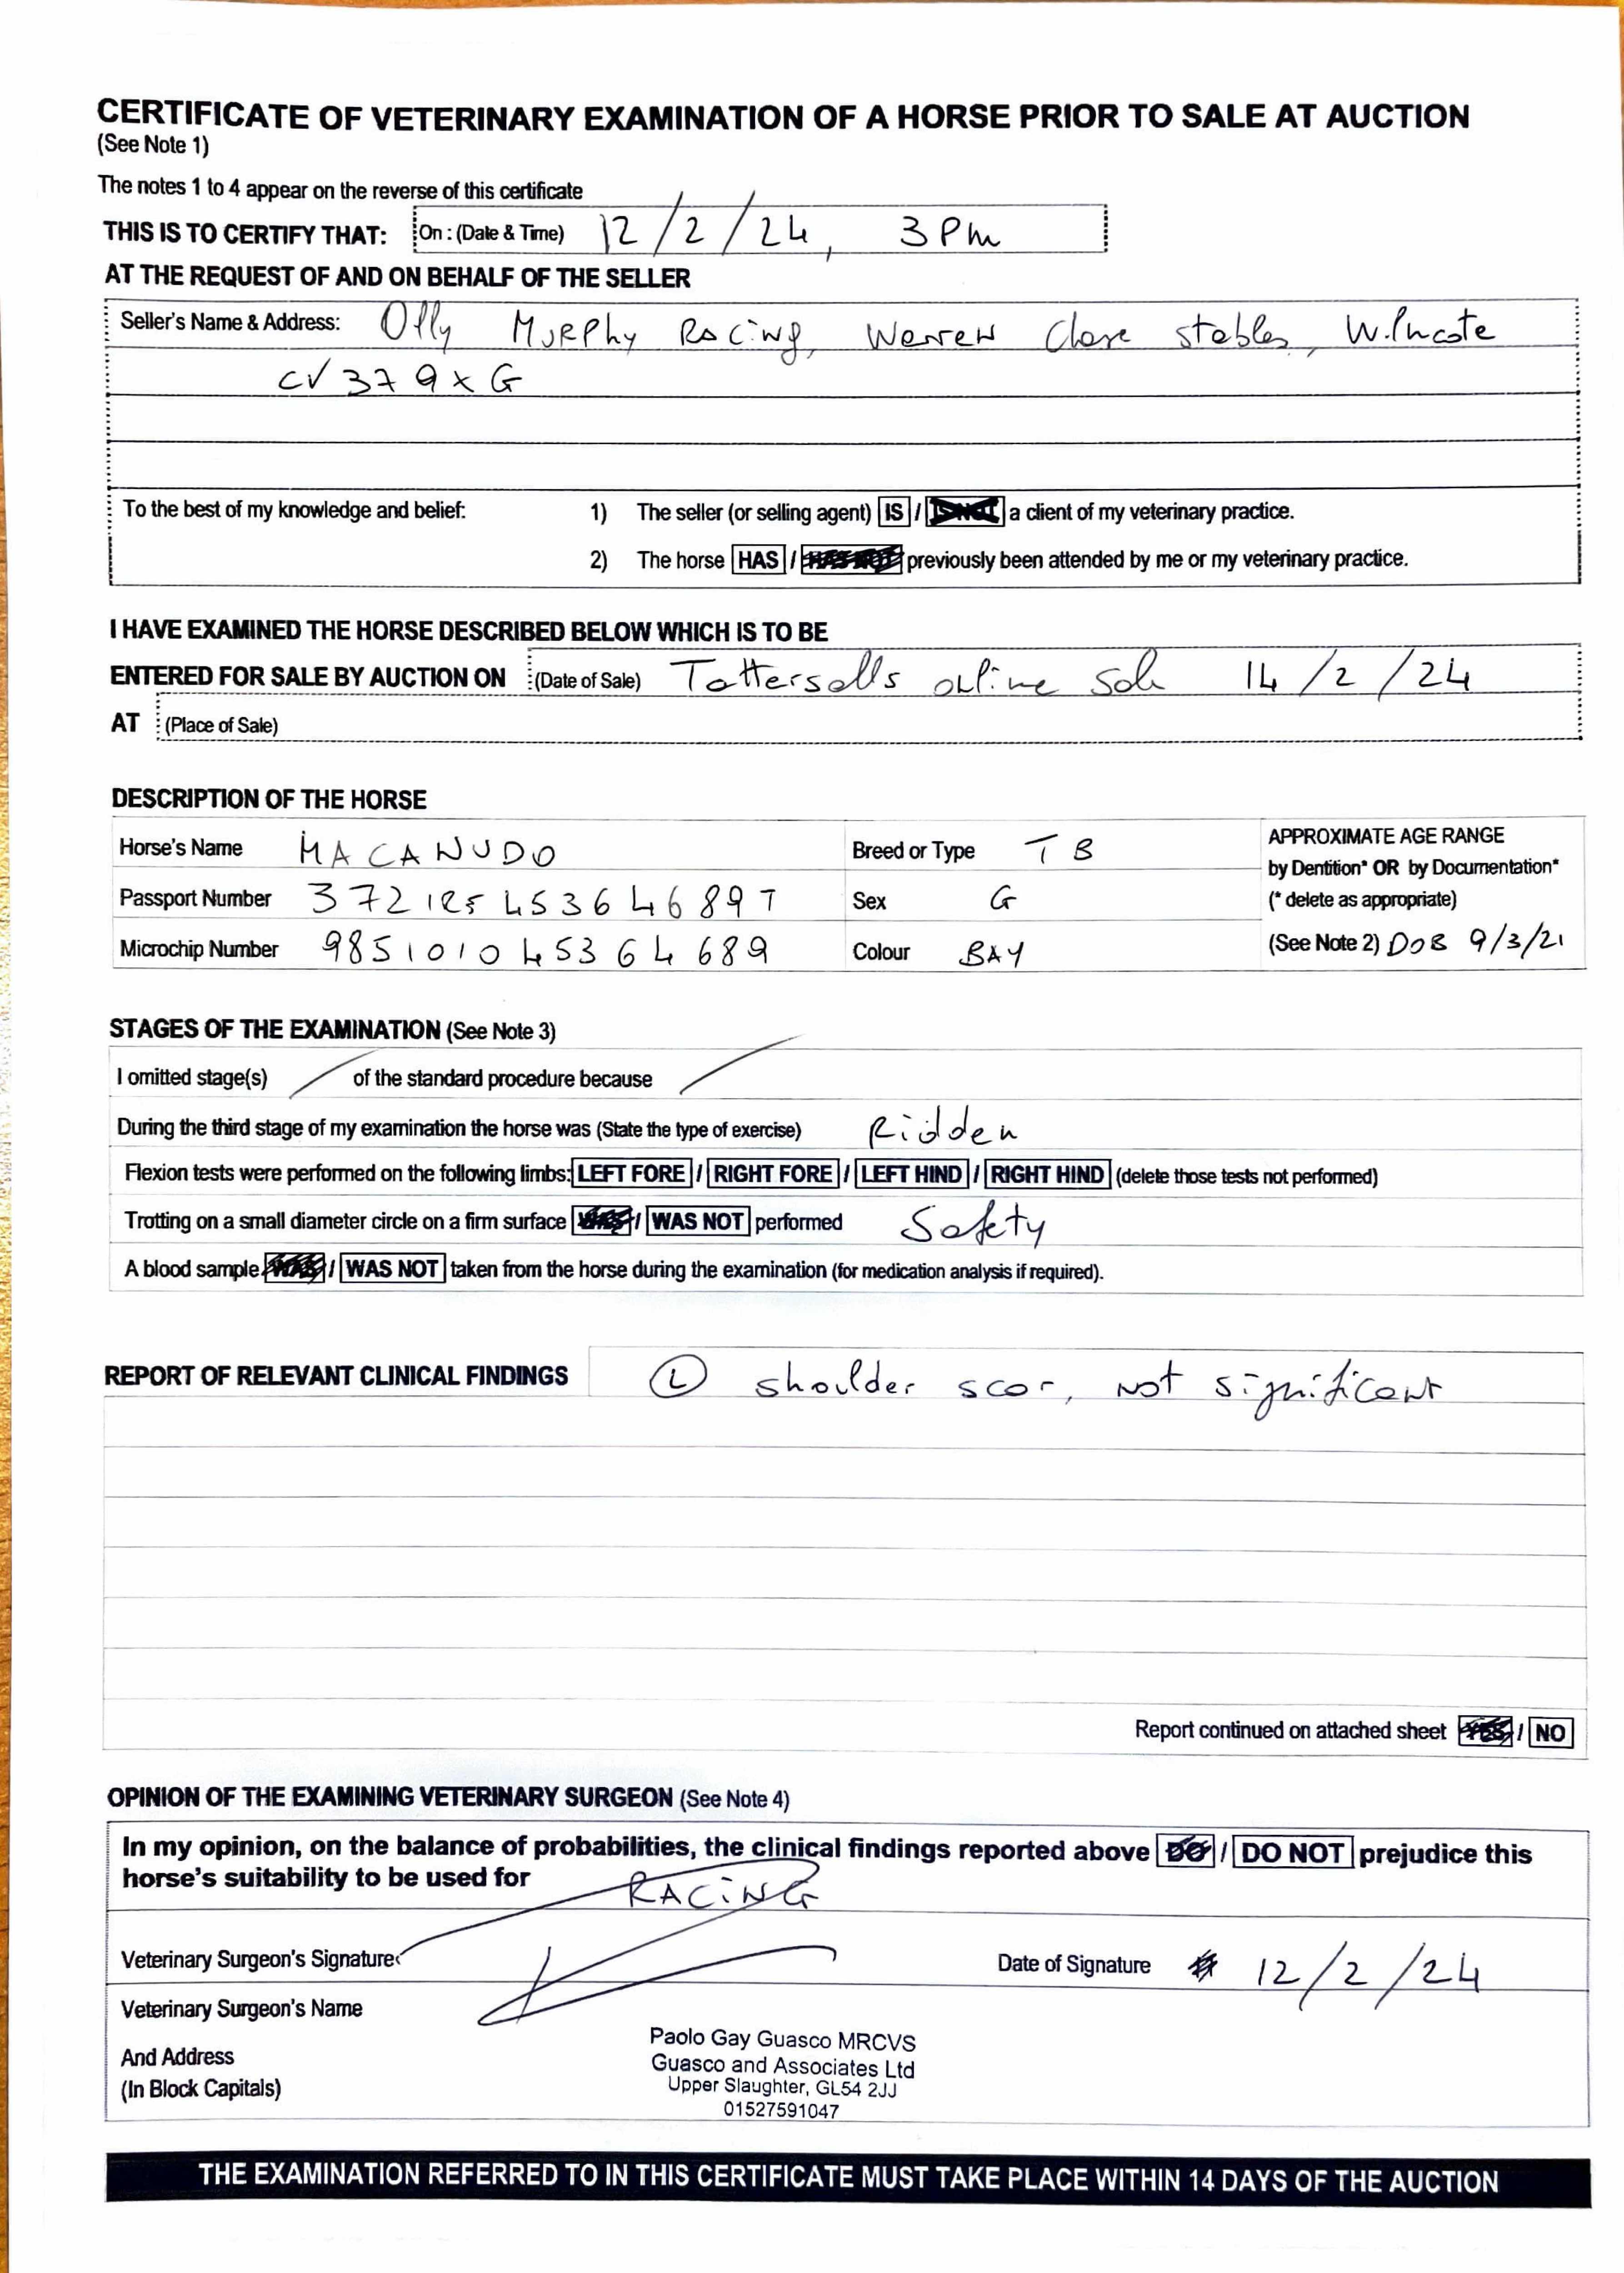 CERTIFICATE OF VETERINARY EXAMINATION OF A HORSE PRIOR TO SALE AT AUCTION
(See Note 1)
The notes 1 to 4 appear on the reverse of this certificate
THIS IS TO CERTIFY THAT: On : (Date & Time) 12/2/24, 3 Pm
AT THE REQUEST OF AND ON BEHALF OF THE SELLER
Seller's Name & Address: Olly Murphy Racing, Warren Chase stables, Wilmcote
CV37 9XG
To the best of my knowledge and belief: 1) The seller (or selling agent) IS / IS NOT a client of my veterinary practice.
2) The horse HAS / HAS NOT previously been attended by me or my veterinary practice.
I HAVE EXAMINED THE HORSE DESCRIBED BELOW WHICH IS TO BE
ENTERED FOR SALE BY AUCTION ON (Date of Sale) Tattersalls online sale 14/2/24
AT (Place of Sale)
DESCRIPTION OF THE HORSE
Horse's Name MACANUDO Breed or Type TB APPROXIMATE AGE RANGE
by Dentition* OR by Documentation*
Passport Number Sex G (* delete as appropriate)
Microchip Number 985101045364689 Colour BAY (See Note 2) DOB 9/3/21
STAGES OF THE EXAMINATION (See Note 3)
I omitted stage(s) / of the standard procedure because /
During the third stage of my examination the horse was (State the type of exercise) Ridden
Flexion tests were performed on the following limbs: LEFT FORE / RIGHT FORE / LEFT HIND / RIGHT HIND (delete those tests not performed)
Trotting on a small diameter circle on a firm surface WAS / WAS NOT performed Safety
A blood sample WAS / WAS NOT taken from the horse during the examination (for medication analysis if required).
REPORT OF RELEVANT CLINICAL FINDINGS Ⓛ shoulder scar, not significant
Report continued on attached sheet YES / NO
OPINION OF THE EXAMINING VETERINARY SURGEON (See Note 4)
In my opinion, on the balance of probabilities, the clinical findings reported above DO / DO NOT prejudice this
horse's suitability to be used for RACING
Veterinary Surgeon's Signature Date of Signature 12/2/24
Veterinary Surgeon's Name
And Address
(In Block Capitals)
Paolo Gay Guasco MRCVS
Guasco and Associates Ltd
Upper Slaughter, GL54 2JJ
01527591047
THE EXAMINATION REFERRED TO IN THIS CERTIFICATE MUST TAKE PLACE WITHIN 14 DAYS OF THE AUCTION